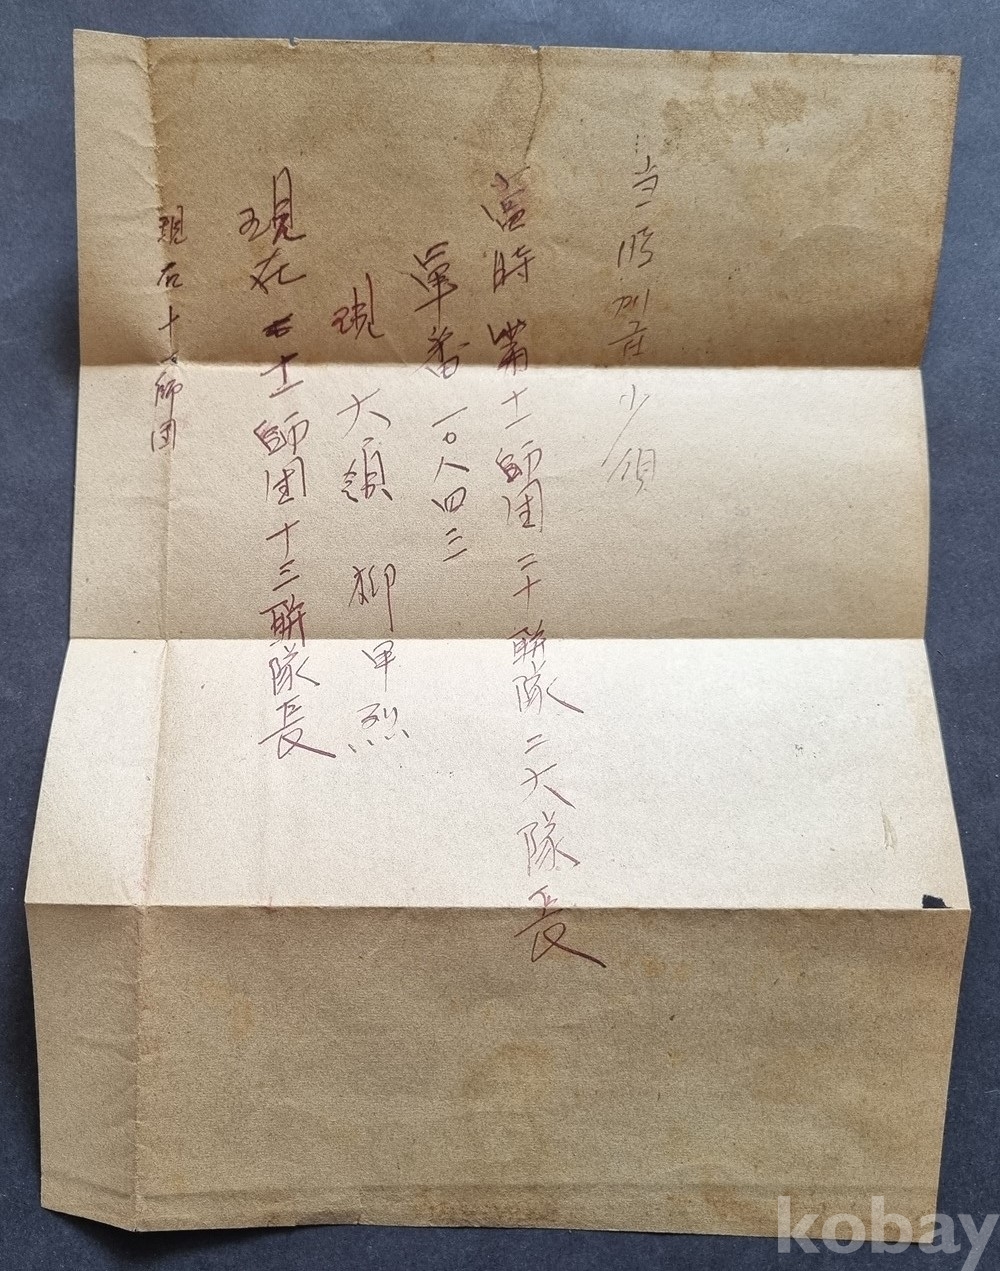 当時 少領
當時 第十一師团 二十聯隊 二大隊長
軍番 一〇八四三
現 大領 柳甲烈
現在 十一師团 十三聯隊長
現在 十 師団
kobay